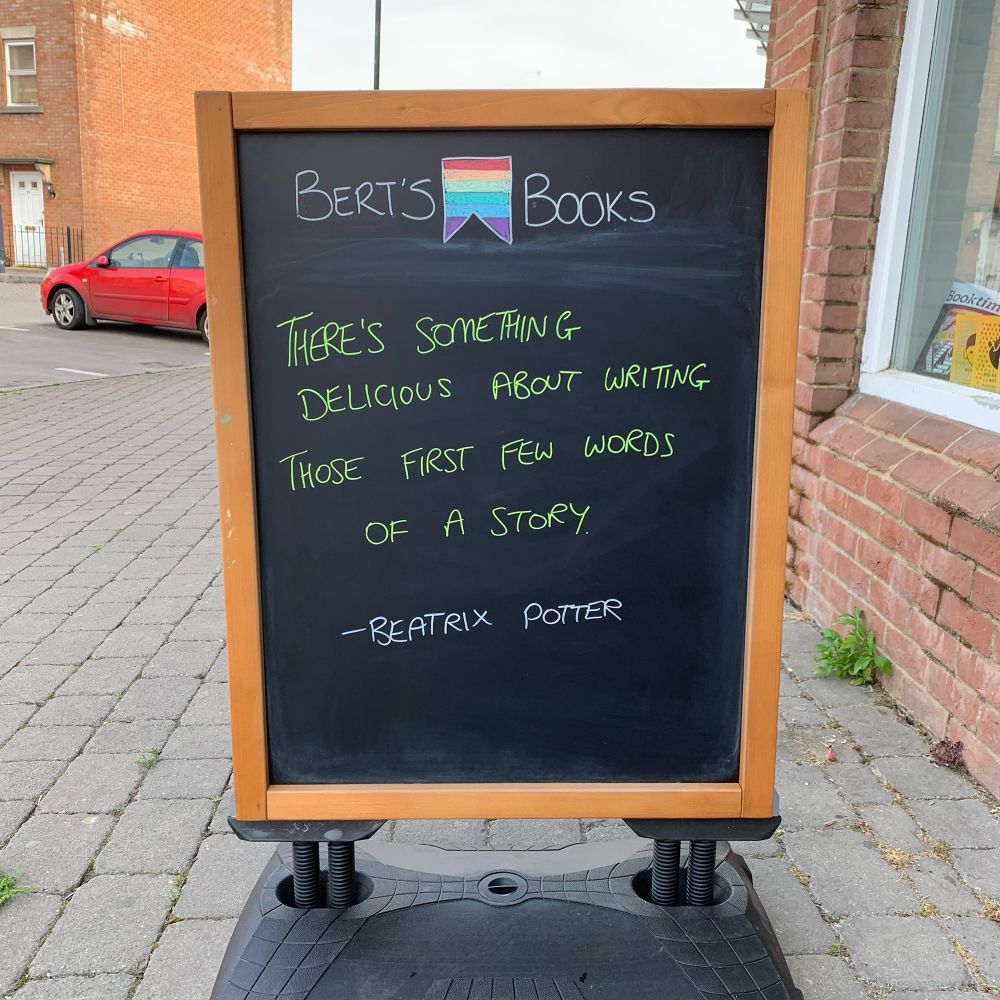 BERT'S BOOKS
THERE'S SOMETHING
DELICIOUS ABOUT WRITING
THOSE FIRST FEW WORDS
OF A STORY.
-BEATRIX POTTER
Booktim